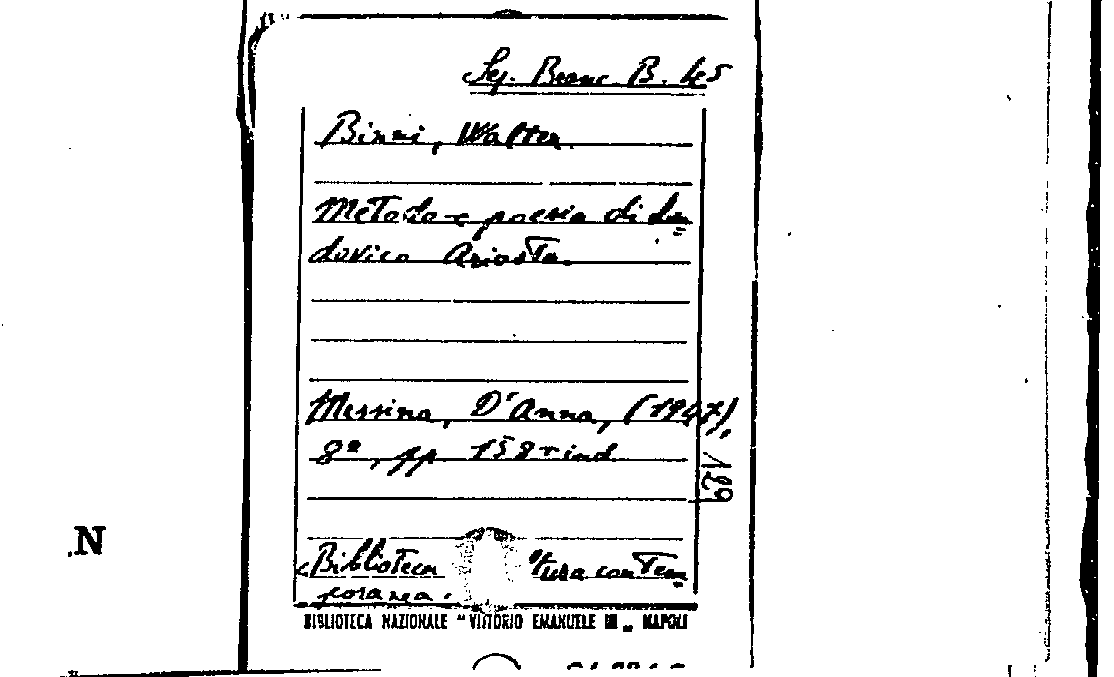 Sez. Branc. B. 45
Binni, Walter.
Metodo e poesia di Lu=
dovico Ariosto.
Messina, D'Anna, (1947),
8°, pp 158 + ind.
129
N
<Biblioteca tura contem=
poranea.
BIBLIOTECA NAZIONALE "VITTORIO EMANUELE III" NAPOLI